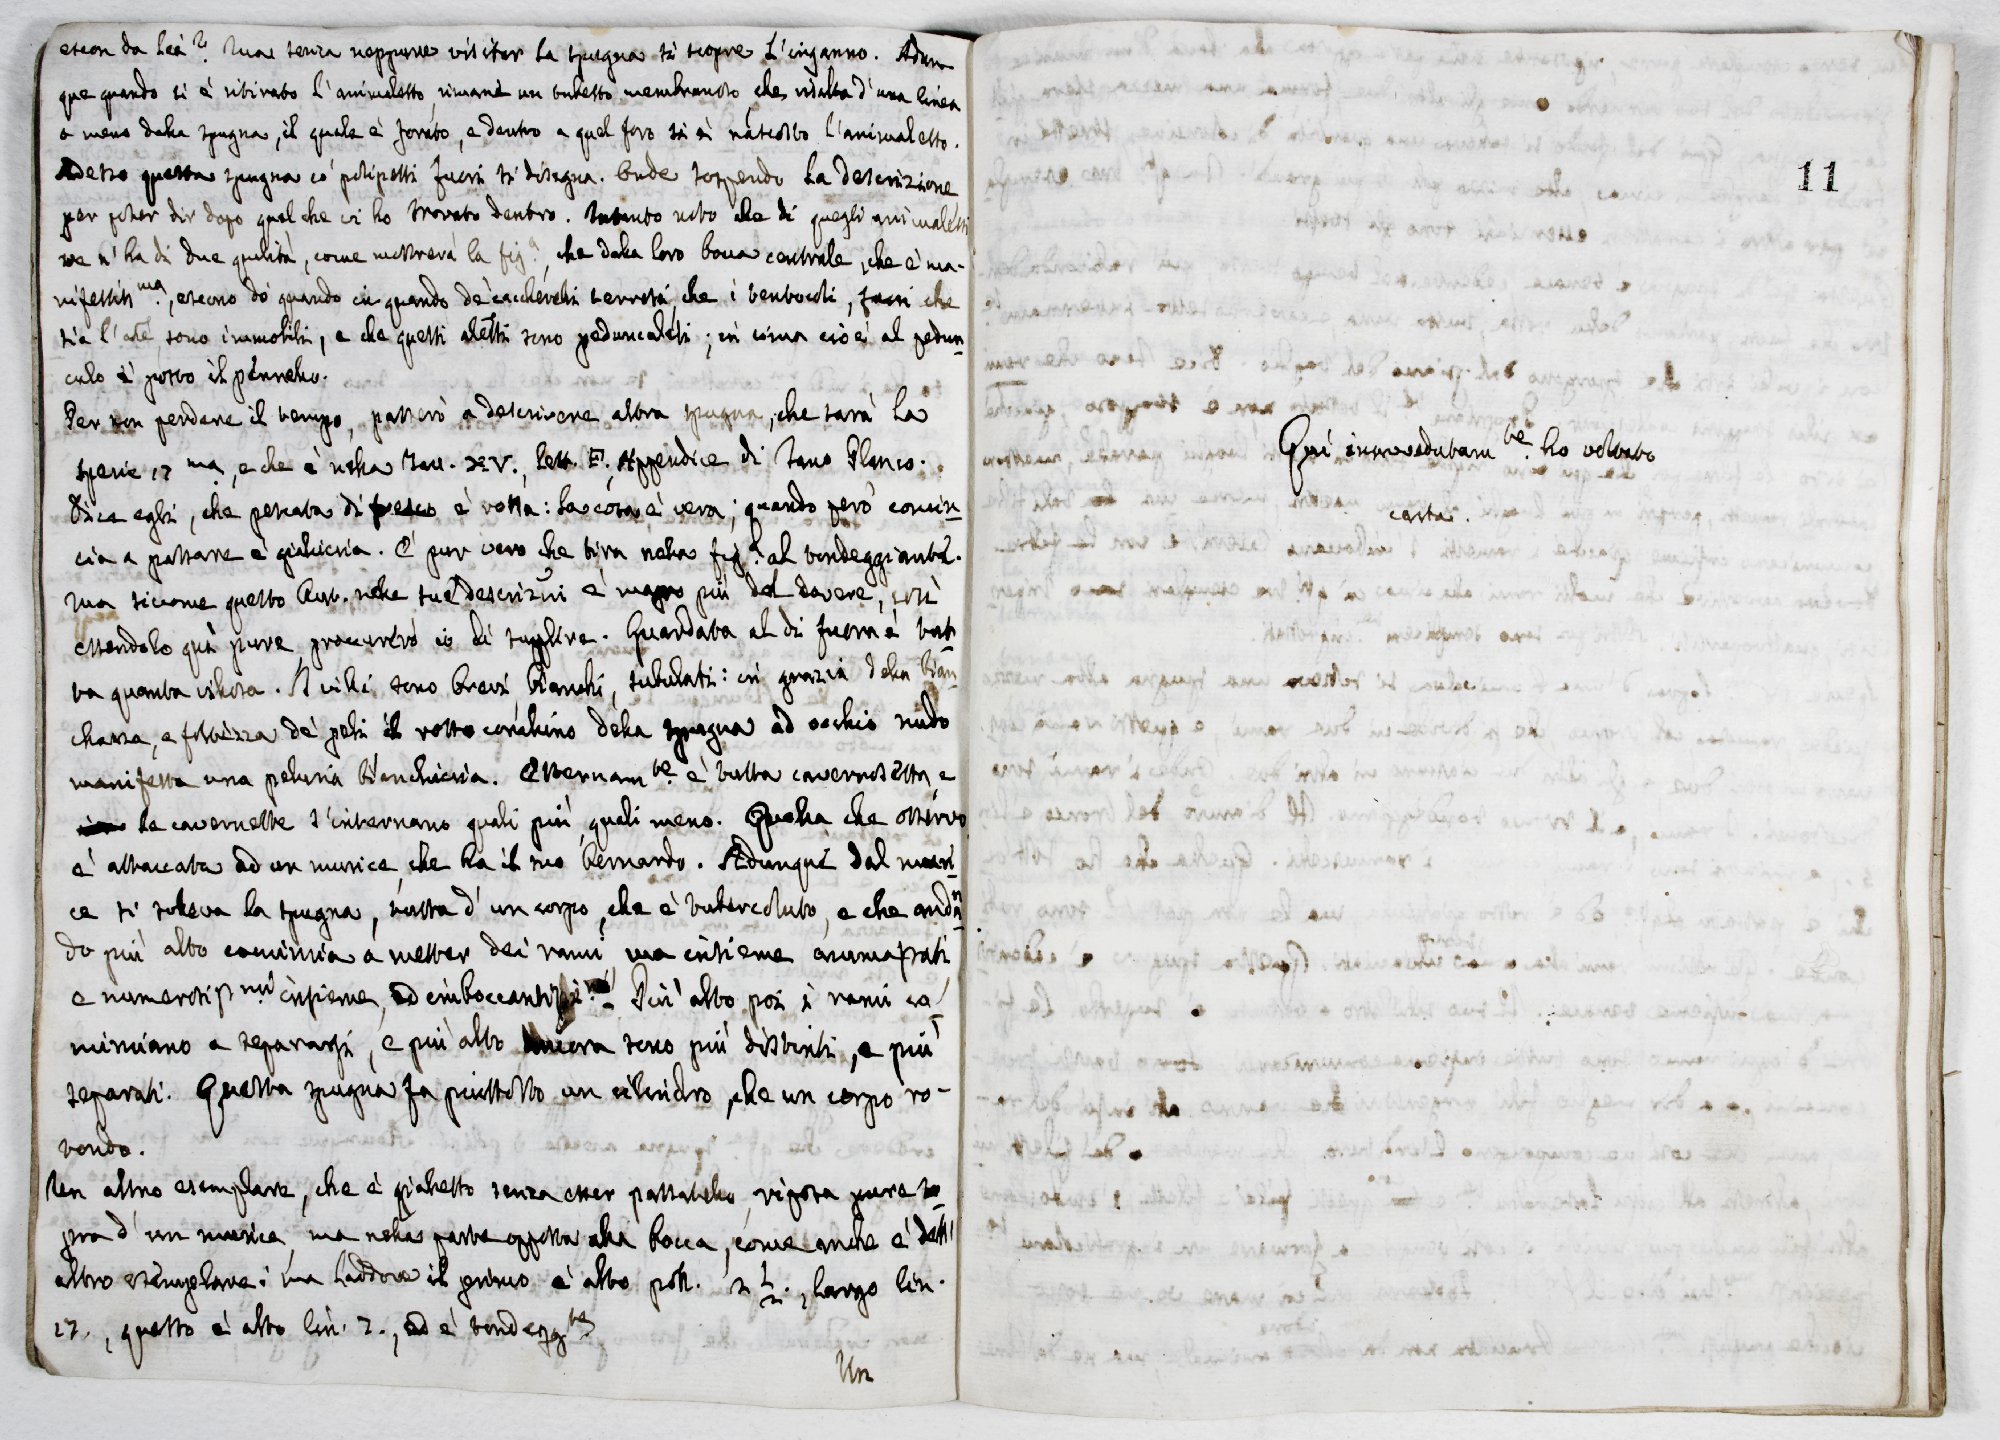 escon da lei? Ma senza neppure visitar la spugna si scopre l'inganno. Adun
que quando si è ritirato l'animaletto, rimane un tubetto membranoso, che risalta d'una linea
o meno dalla spugna, il quale è forato, e dentro a quel foro si è nascosto l'animaletto.
Adesso questa spugna co' polipetti fuori si disegna. Onde sospendo la descrizione
per poter dir dopo quel che vi ho trovato dentro. Intanto noto che di quegli animaletti
ve n'ha di due qualità, come mostrerà la fig.ª, che dalla loro bocca centrale, che è ma-
nifestiss.ma, escono di quando in quando de' caccherelli terrosi, che i tentacoli, fuori che
sia l' sono immobili, e che questi sono peduncolati; in cima cioè al pedun
culo è posto il pennello.
Per non perdere il tempo, passerò a descrivere altra spugna, che sarà la
specie 17.ma, e che è nella Tav. XV., lett. F., Appendice di Jano Planco.
Dice egli, che pescata di fresco è rossa: la cosa è vera; quando però comin
cia a passare è gialliccia. È pur vero che tira nella fig.ª al tondeggiante.
Ma siccome questo Aut. nelle sue descrizioni è magro più del dovere, così
essendolo quì pure procurerò io di supplire. Guardata al di fuora è tut
ta quanta villosa. I villi sono brevi, bianchi, subulati: in grazia della bian
chezza, e foltezza de' peli il rosso corallino della spugna ad occhio nudo
manifesta una peluria bianchiccia. Esternam.te è tutta cavernosetta, e
le cavernette s'internano quali più, quali meno. Quella che osservo
è attaccata ad un murice, che ha il suo bernardo. Adunque dal muri
ce si solleva la spugna, sulla d'un corpo, che è tubercoluto, e che andan
do più alto comincia a metter dei rami ma insieme ammassati
e numerosiss.mi insieme, ed imboccantisi. Più alto poi i rami co-
minciano a separarsi, e più alto ancora sono più distinti, e più
separati. Questa spugna fa piuttosto un cilindro, che un corpo ro-
tondo.
Un altro esemplare, che è gialletto senza esser passatello, riposa pure so
pra d'un murice, ma nella parte opposta alla bocca, come anche è dell'
altro esemplare; ma laddove il primo è alto poll. 2 1/2., largo lin.
17., questo è alto lin. 7., ed è tondegg.te
Un
11
Qui inavvedutam.te ho voltato
carta.